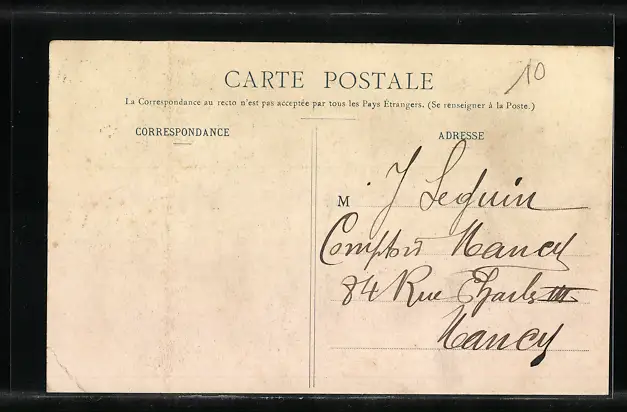 10
CARTE POSTALE
La Correspondance au recto n'est pas acceptée par tous les Pays Étrangers. (Se renseigner à la Poste.)
CORRESPONDANCE
ADRESSE
M J Seguin
Comptoir Nancy
84 Rue Charles III
Nancy